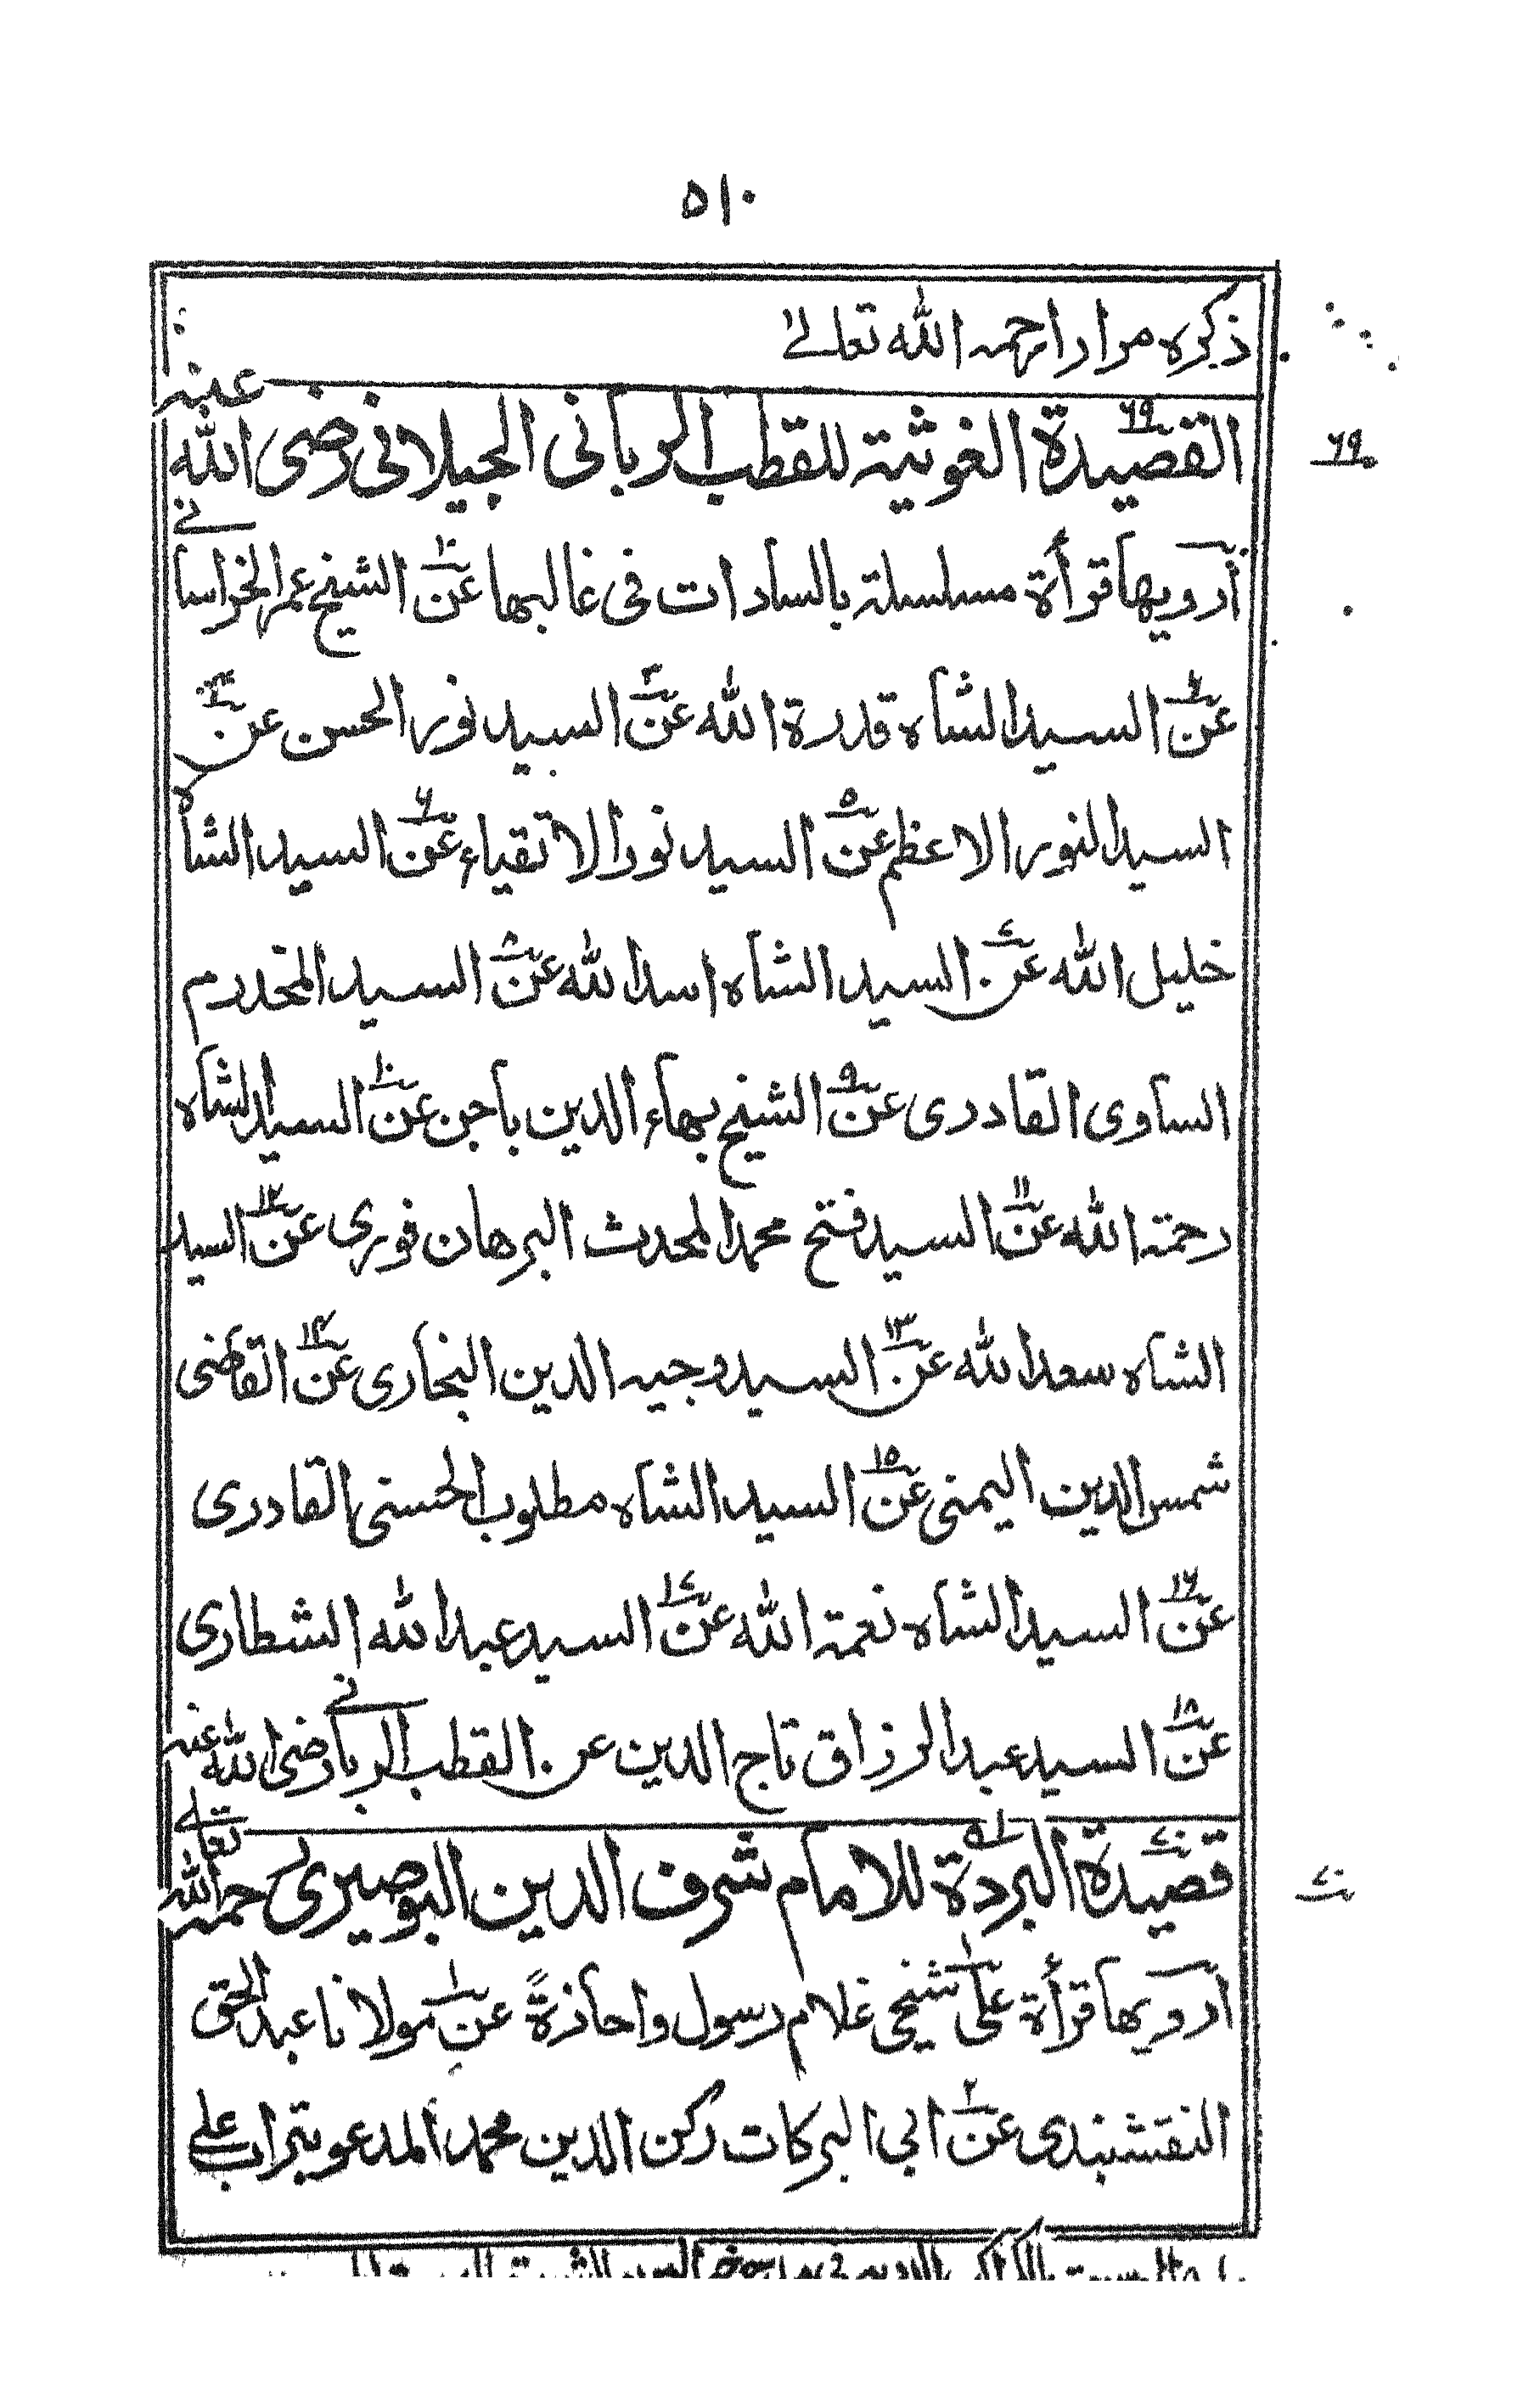 ٥١٠
ذكره مرارا رحمه الله تعالے
القصيدة الغوثية للقطب الرباني الجيلاني رضي الله عنه
٦٩
أرويها قرأة مسلسلة بالسادات في غالبها عن١ الشيخ عمر الخراسانے
عن٢ السيد الشاه قدرة الله عن٣ السيد نور الحسن عن٤
السيد النور الاعظم عن٥ السيد نور الاتقياء عن٦ السيد الشاه
خليل الله عن٧ السيد الشاه اسد الله عن٨ السيد المخدوم
الساوى القادرى عن٩ الشيخ بهاء الدين باجن عن١٠ السيد الشاه
رحمة الله عن١١ السيد فتح محمد المحدث البرهان فورى عن١٢ السيد
الشاه سعد الله عن١٣ السيد وجيه الدين البخارى عن١٤ القاضى
شمس الدين اليمنى عن١٥ السيد الشاه مطلوب الحسنى القادرى
عن١٦ السيد الشاه نعمة الله عن١٧ السيد عبد الله الشطارى
عن١٨ السيد عبد الرزاق تاج الدين عن القطب الربانے رضى الله عنه تعالے
قصيدة البردة للامام شرف الدين البوصيرى رحمة الله
٧٠
أرويها قرأة على١ شيخى غلام رسول واجازةً عن١ مولانا عبد الحق
النقشبندى عن٢ ابي البركات ركن الدين محمد المدعو بتراب علے